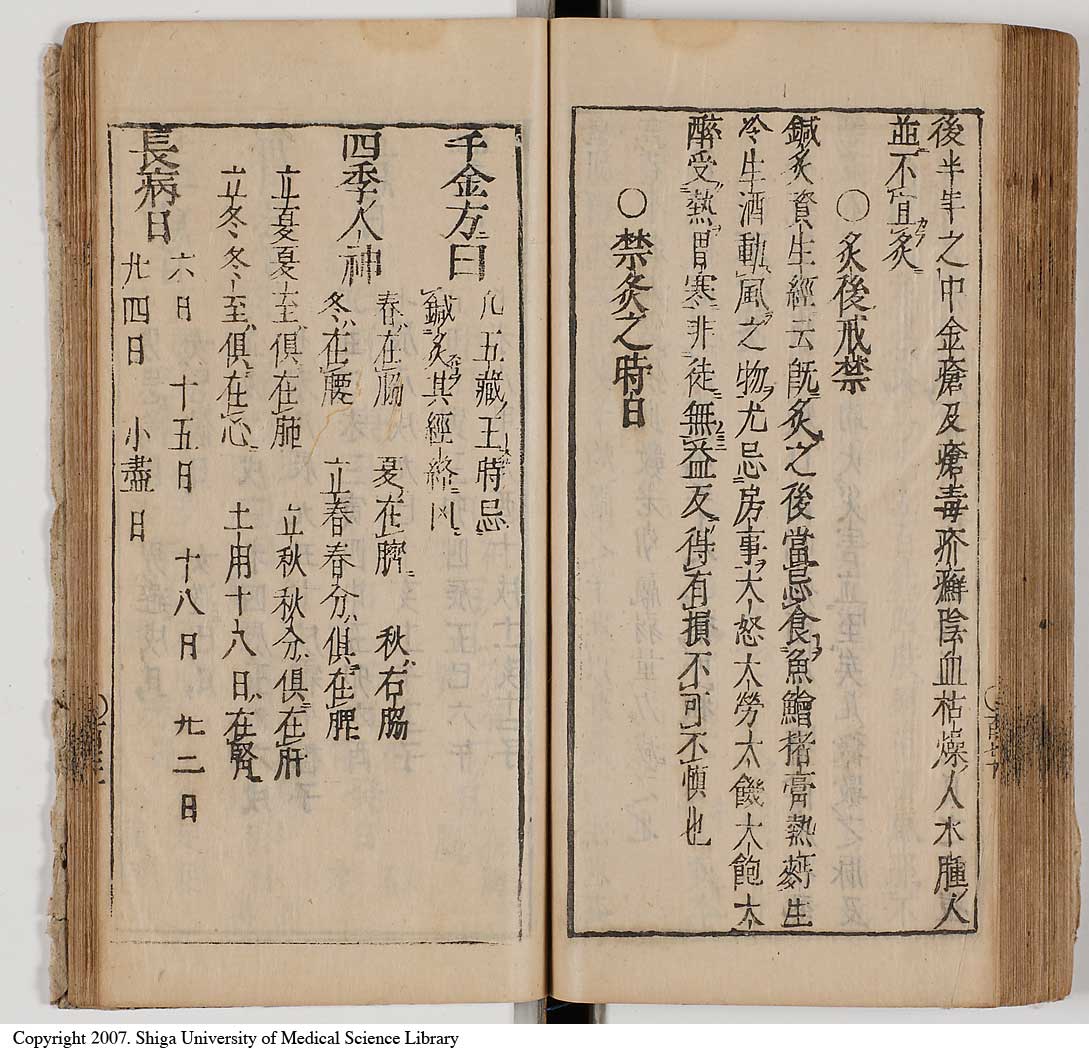 後半年之中金瘡及瘡毒疥癬陰血枯燥人水腫人
並不宜灸
○灸後戒禁
鍼灸資生經云既灸之後當忌食魚鱠猪膏熱麪生
冷生酒動風之物尤忌房事大怒太勞太饑大飽太
醉受熱冒寒非徒無益反得有損不可不愼也
○禁灸之時日
千金方曰
凡五藏王時忌
鍼灸其經絡凶
四季人神
春在脇 夏在臍 秋右脇
冬在腰 立春春分俱在脾
立夏夏至俱在肺 立秋秋分俱在肝
立冬冬至俱在心 土用十八日在腎
長病日
六日 十五日 十八日 廿二日
廿四日 小盡日
Copyright 2007. Shiga University of Medical Science Library